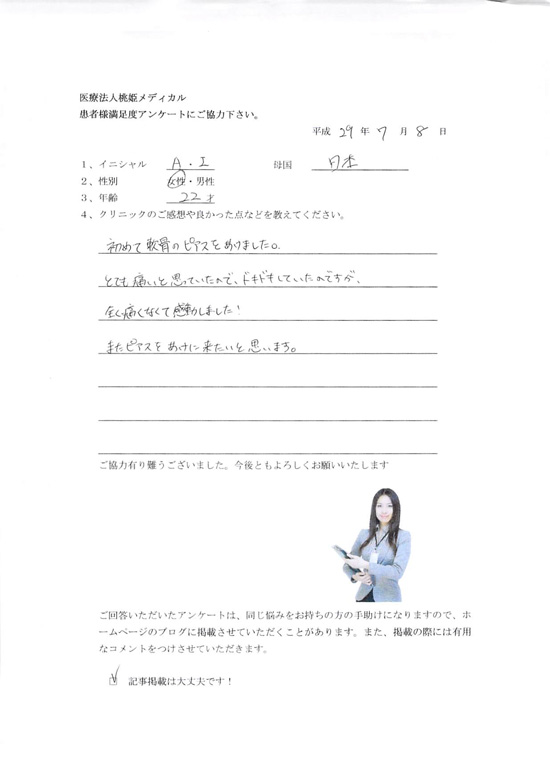 医療法人桃姫メディカル
患者様満足度アンケートにご協力下さい。
平成 29 年 7 月 8 日
1、イニシャル A・I 母国 日本
2、性別 女性・男性
3、年齢 22才
4、クリニックのご感想や良かった点などを教えてください。
初めて軟骨のピアスをあけました。
とても痛いと思っていたので、ドキドキしていたのですが、
全く痛くなくて感動しました!
またピアスをあけに来たいと思います。
ご協力有り難うございました。今後ともよろしくお願いいたします
ご回答いただいたアンケートは、同じ悩みをお持ちの方の手助けになりますので、ホ
ームページのブログに掲載させていただくことがあります。また、掲載の際には有用
なコメントをつけさせていただきます。
☑ 記事掲載は大丈夫です!